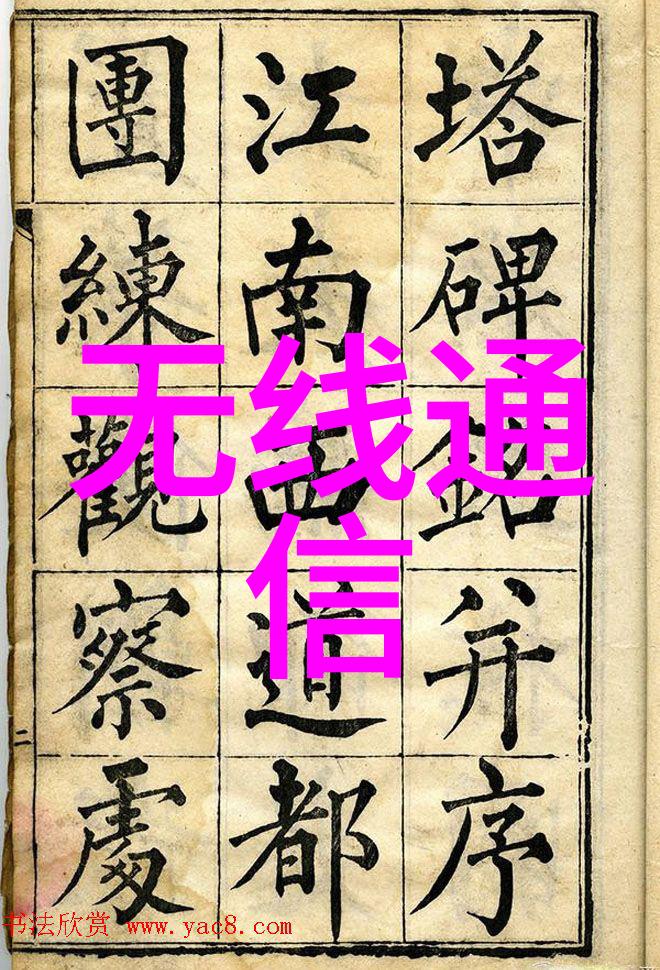 塔碑銘并序
江南西道都
團練觀察處
二
无线通
信
书法欣赏 www.yac8.com